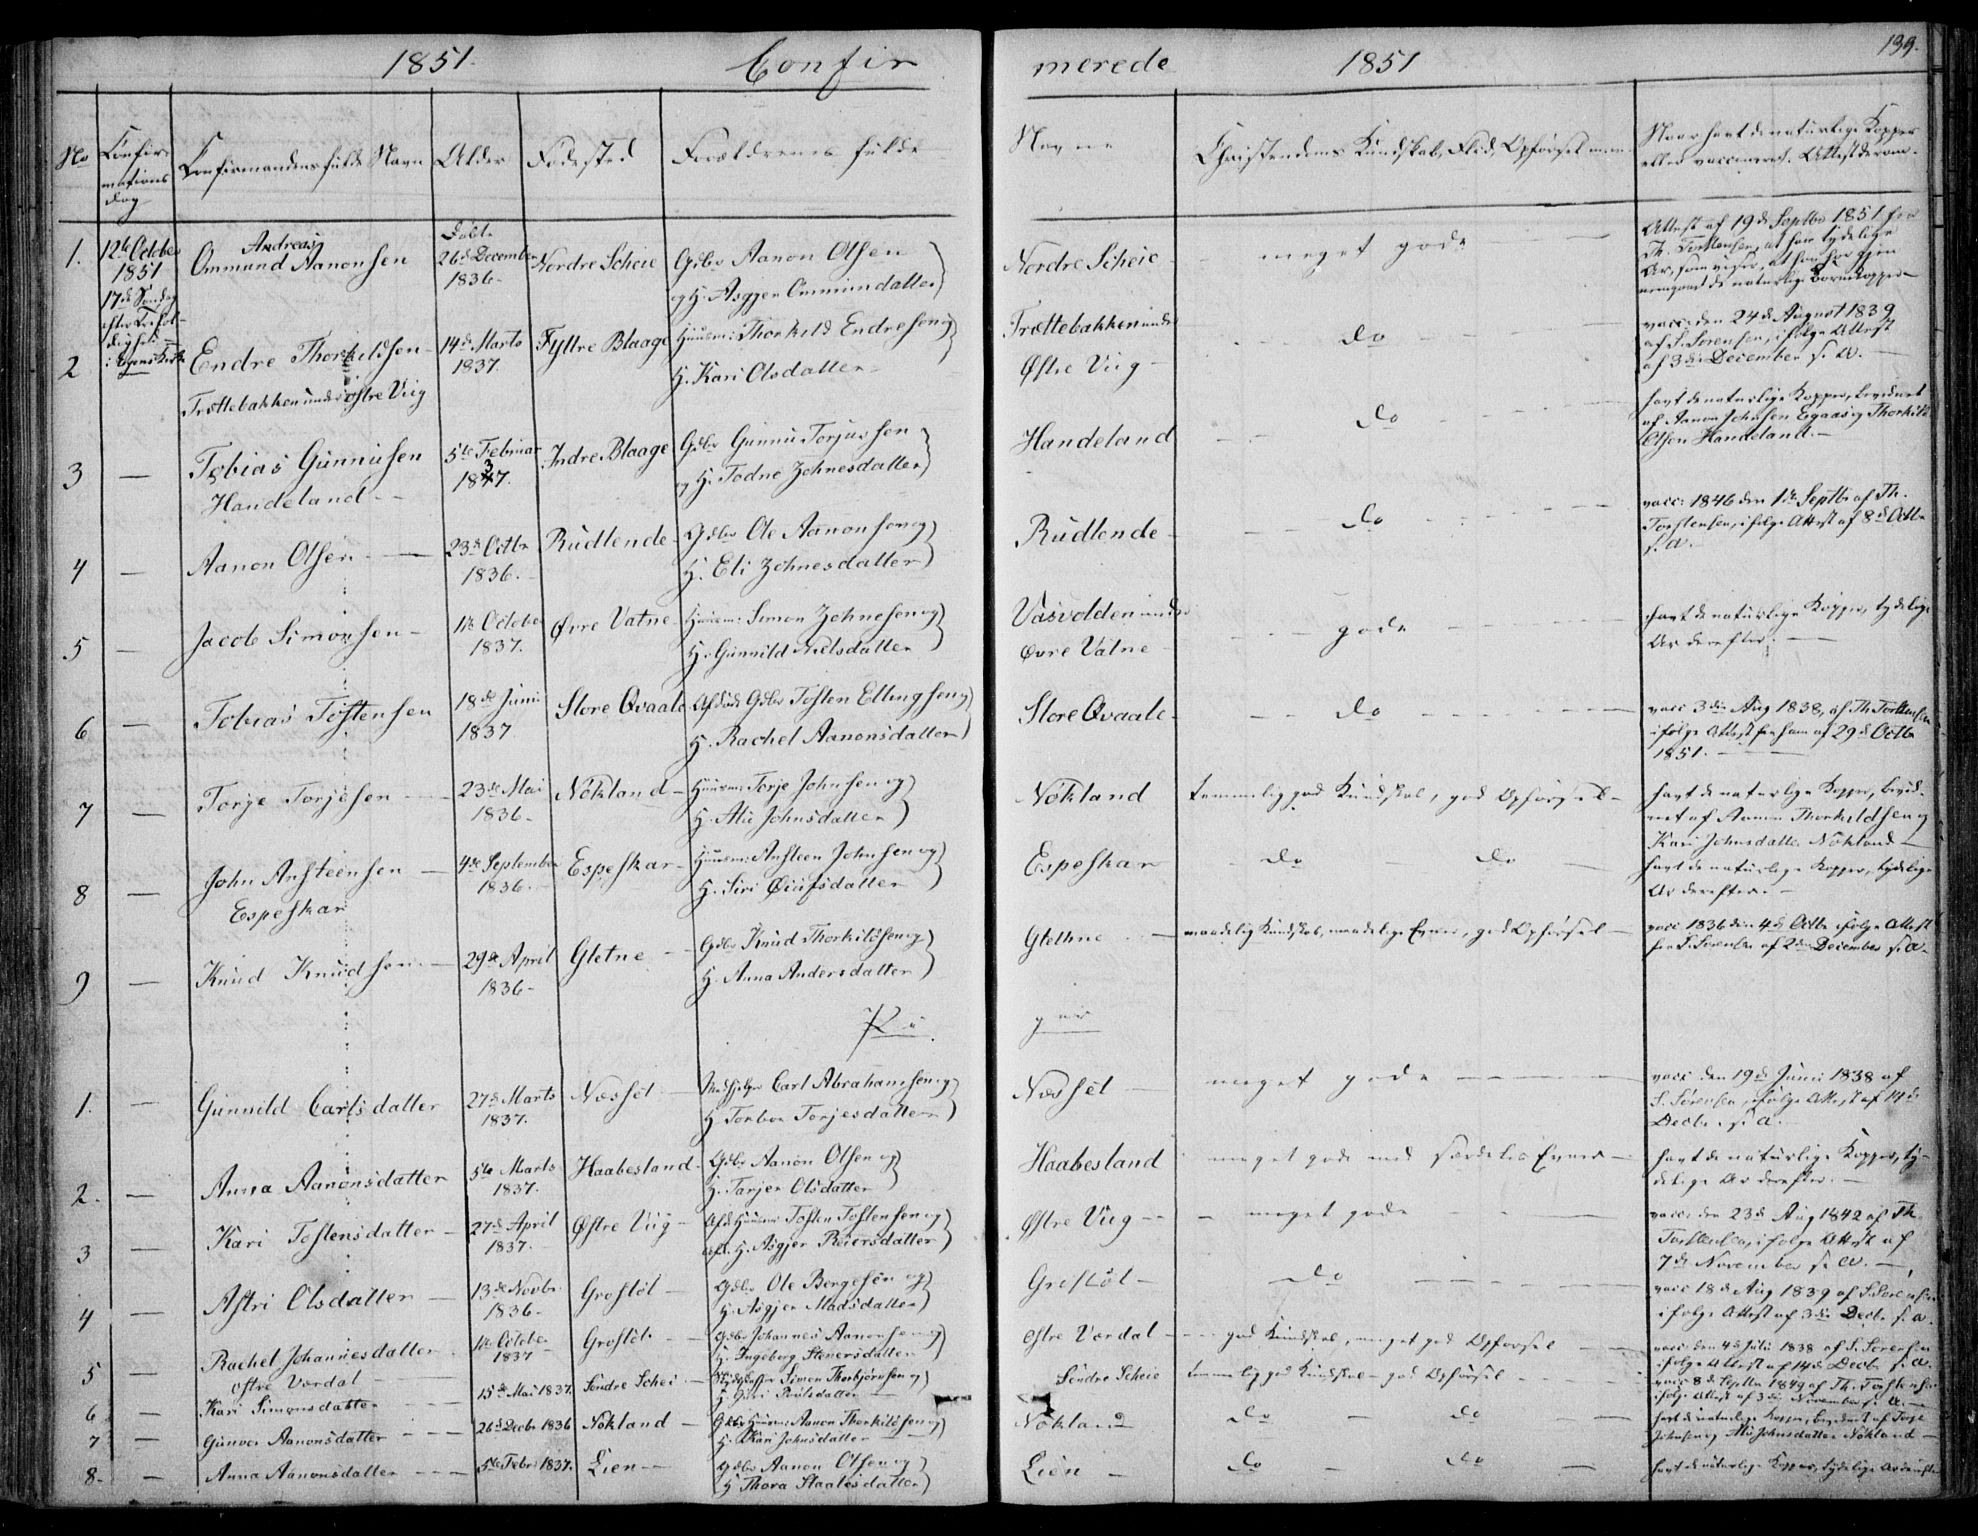 1851. Confir
merede 1851 199.
No Confir- Confirmandens fulde Navn Alder Fødested Forældrenes fulde
mations
dag
Navne Christendoms Kundskab, Flid, Opførsel m.m. Naar havt de naturlige Kopper
eller vaccineret. Attest derom.
1. 12te October Andreas Døbt
1851 Ommund Aanonsen 26de December Nordre Scheie Gdbr Aanon Olsen
17de Søndag 1836- og H. Asgjer Ommundsdatter
efter Trefol-
dighed
Nordre Scheie - meget gode
Attest af 19de Septbr 1851 fra
Th. Torstensen, at han har tydelige
Ar
2 Endre Thorkildsen 14de Marts Fyttre Blaage Huusm: Thorkild Endresen og
Trættebakken under Østre Viig 1837. H. Kari Olsdatter
Trættebakken under do
Østre Viig
vacc: den 24de August 1839
af S. Sørensen, ifølge Attest
af 3die December s. A.
3 — Tobias Gunnusen 5te Februar Indre Blaage Gdbr Gunnu Torjussen
Handeland 1837. og H. Todne Zohnesdatter
Handeland do
havt de naturlige Kopper, bevidnet
af Aanon Johnsen Egaas og Thorkild
Olsen Handeland.
4 — Aanon Olsen 23de Octbr Rudlende Gdbr Ole Aanonsen og
1836. H. Eli Zohnesdatter
Rudlende do
vacc: 1846 den 1ste Septbr af Th.
Torstensen, ifølge Attest af 8de Octbr
s. a.
5 — Jacob Simonsen 11te October Øvre Vatne Huusm: Simon Zohnesen og
1837. H. Gunnild Nielsdatter
Vasvolden under gode
Øvre Vatne
havt de naturlige Kopper, tydelige
Ar derefter.
6 — Tobias Tostensen 18de Juni Store Qvaale Afdøde Gdbr Tosten Ellingsen og
1837 H. Rachel Aanonsdatter
Store Qvaale do
vacc 3die Aug 1838, af Th Torstensen
ifølge Attest fra ham af 29de Octbr
1851.
7 — Torge Torjesen 23de Mai Nökland Huusm: Torje Johnsen og
1836- H. Alie Johnsdatter
Nökland temmelig god Kundskab, god Opførsel
havt de naturlige Kopper, bevid-
net af Aanon Thorkildsen og
Kari Johnsdatter Nökland
8 — John Ansteensen 4de September Espeskar Huusm: Ansteen Johnsen og
Espeskar 1836. H. Siri Øiufsdatter
Espeskar do — do
havt de naturlige Kopper, tydelige
Ar derefter.
9 — Knud Knudsen 29de April Gletne Gdbr Knud Thorkildsen og
1836- H. Anna Andersdatter
Glethne maadelig Kundskab, maadelige Evner, god Opførsel
vacc 1836 den 4de Octbr ifølge Attest
fra S. Sørensen af 2den December s. a.
Pi
ger
1. — Gunnild Carlsdatter 27de Marts Næsset Medhjelper Carl Abrahamsen og
1837. H Torbor Torjesdatter
Næsset meget gode
vacc den 19de Juni 1838 af
S. Sørensen, ifølge Attest af 14de
Decbr. s. a.
2. — Anna Aanonsdatter 5te Marts Haabesland Gdbr Aanon Olsen og
1837. H. Tarjer Olsdatter
Haabesland meget gode med særdeles Evner
havt de naturlige Kopper, ty-
delige Ar derefter.
3 — Kari Tostensdatter 27de April Østre Viig Afd: Huusm: Tosten Tostensen og
1837. afd. H. Asgjer Reiersdatter
Østre Viig meget gode
vacc: den 23de Aug 1842 af Th.
Torstensen, ifølge Attest af
7de November s. A.
4 — Astri Olsdatter 13de Novbr. Grostöl Gdbr Ole Bergesen og
1836. H. Asgjer Madsdatter
Grostöl do
vacc 18de Aug 1839 af S. Sørensen
ifølge Attest af 3die Decbr s. a.
5 — Rachel Johannesdatter 11te October Grostöl Gdbr Johannes Aanonsen og
østre Værdal 1837 H. Ingeborg Stenersdatter
østre Værdal god Kundskab, meget god Opførsel
vacc: den 4de Juli 1838 af S. Sørensen
ifølge Attest af 14de Decbr s. a.
6 — Kari Simonsdatter 15de Mai 1837. Søndre Schei Simon Thorbjørnsen og
H. Guri Poulsdatter
Søndre Scheie temmelig god Kundskab god Opførsel
vacc 8de Septbr 1849 af Th. Torstensen
ifølge Attest af 3die November s. A.
7 — Gunvor Aanonsdatter 26de Decbr 1836 Nökland Huusm: Aanon Thorkildsen og
H. Kari Johnsdatter
Nökland do — do
havt de naturlige Kopper, bevidnet af Torje
Johnsen og Alie Johnsdatter Nökland
8. — Anna Aanonsdatter 5te Febr: 1837. Lien Gdbr Aanon Olsen og
H Thora Staalesdatter
Lien do — do
havt de naturlige Kopper, tydelige Ar derefter